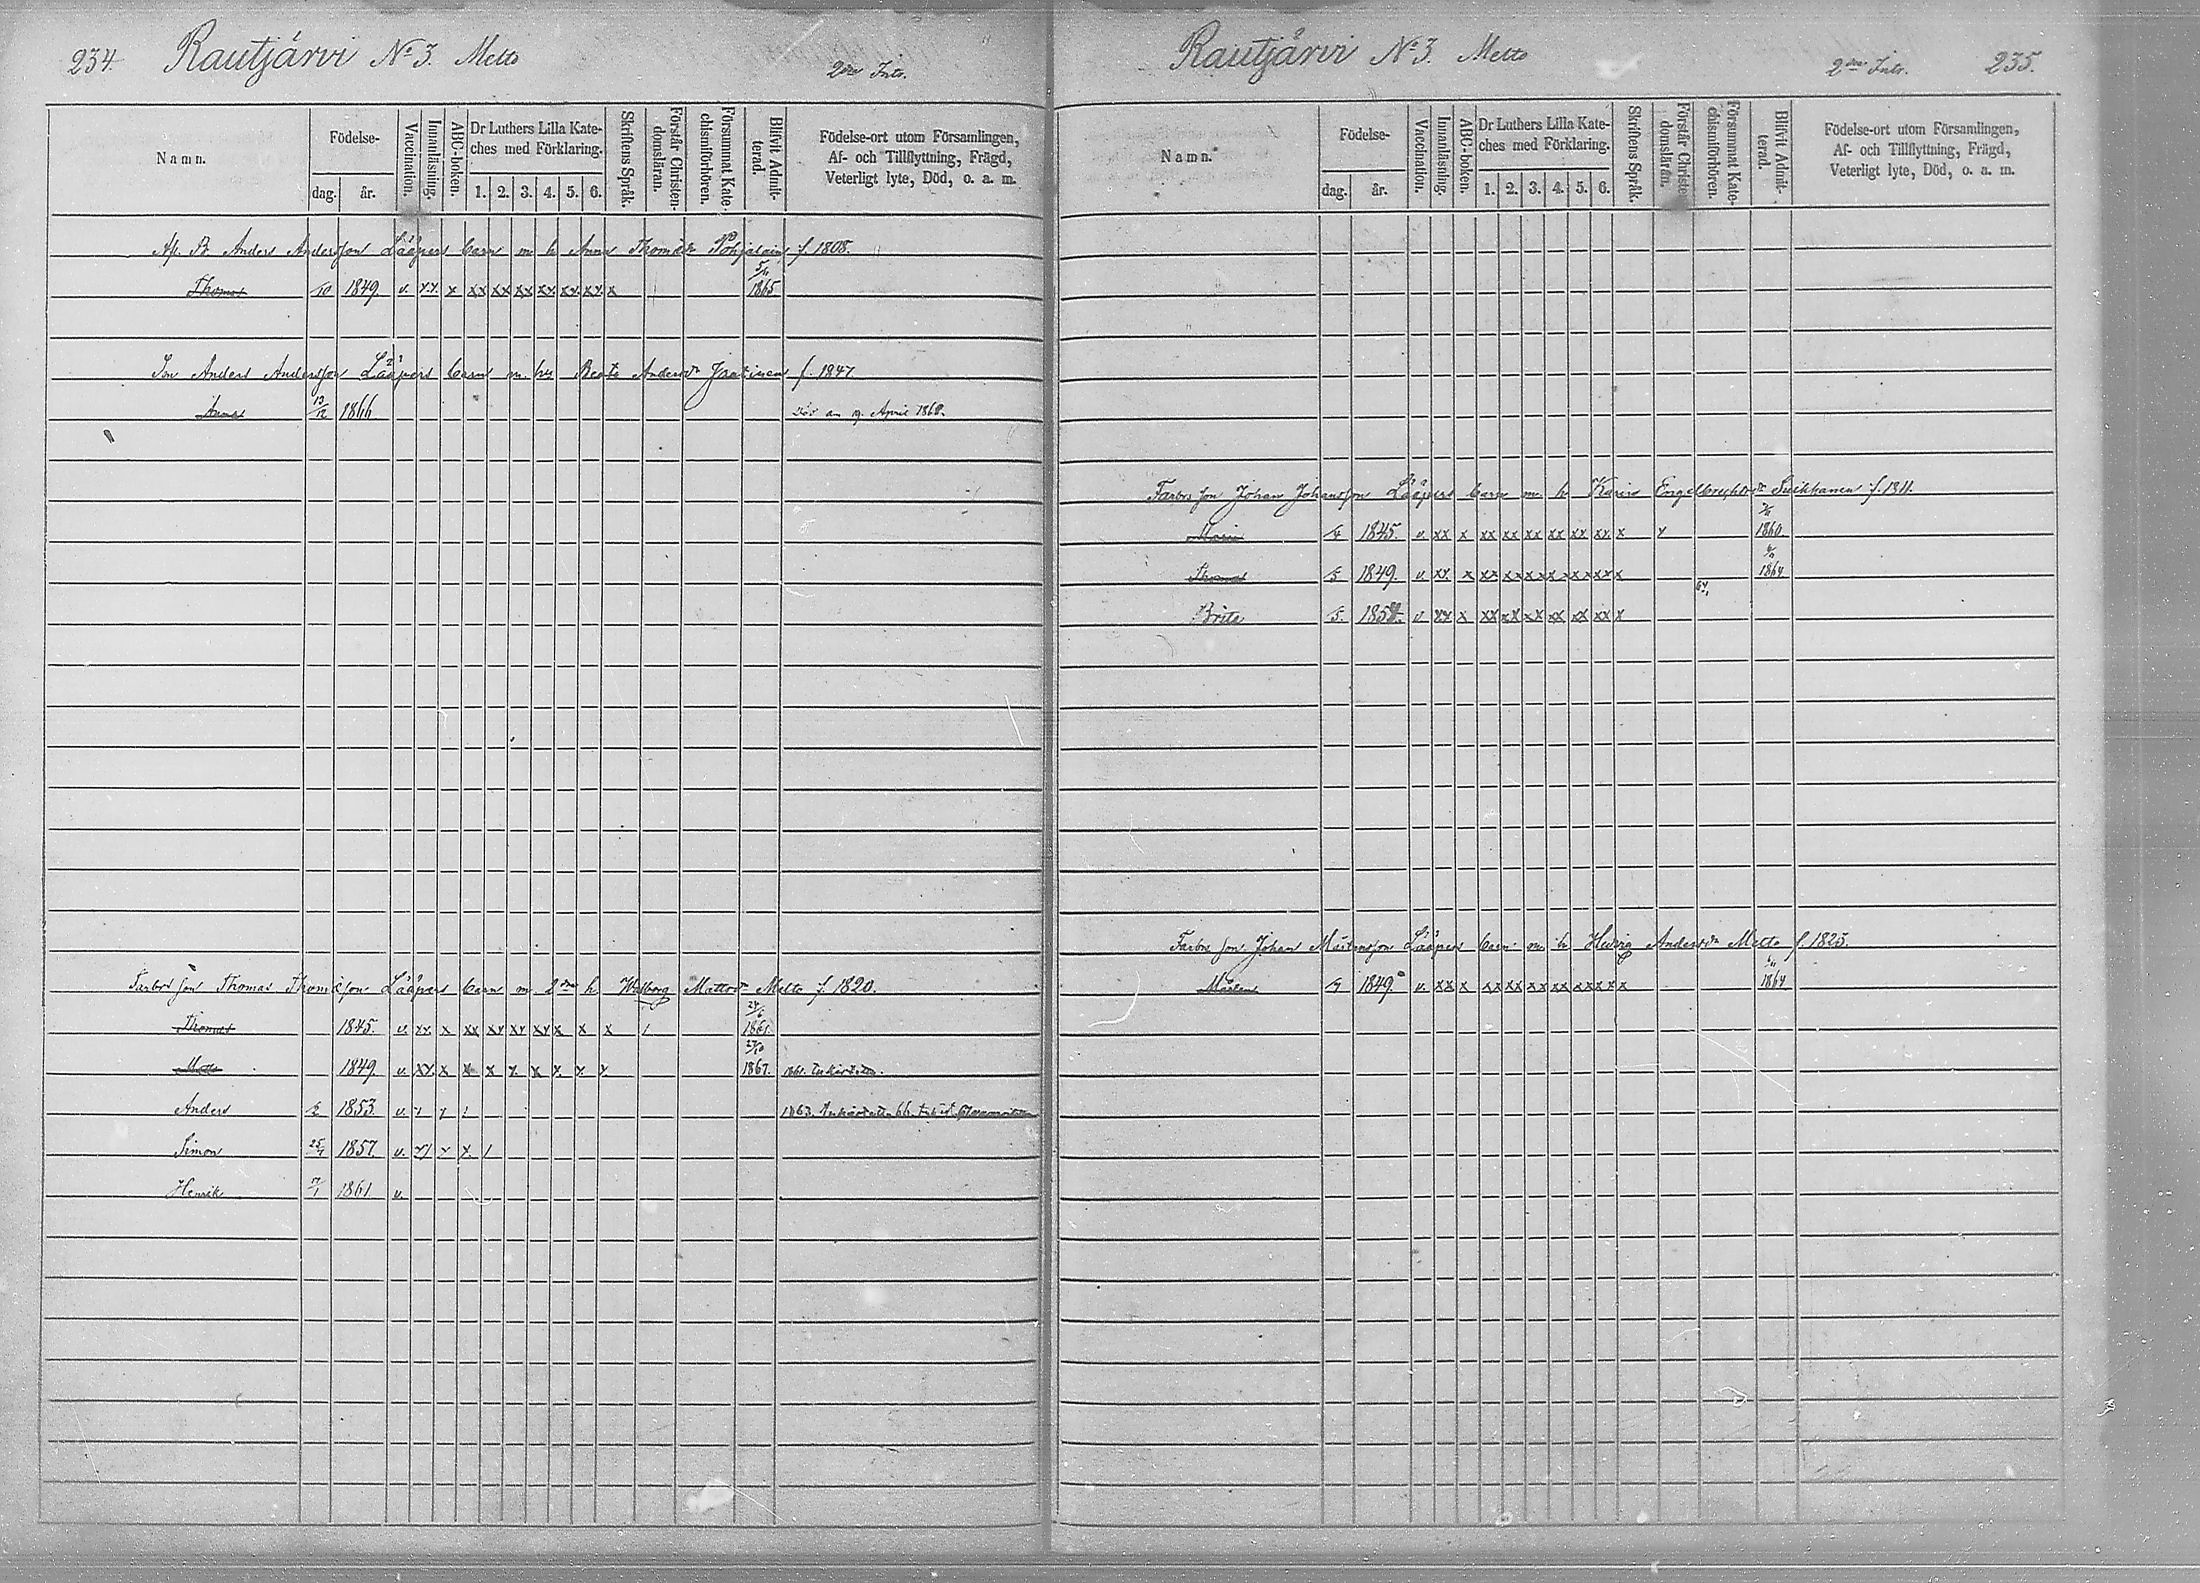 234. Rautjärvi No 3. Metto 2dra Intr.
Namn. Födelse- dag. år. Vaccination. Innanläsning. ABC-boken. Dr Luthers Lilla Kateches med Förklaring. 1. 2. 3. 4. 5. 6. Skriftens Språk. Förstår Christendomsläran. Försummat Katechismiförhören. Blifvit Admitterad. Födelse-ort utom Församlingen, Af- och Tillflyttning, Frägd, Veterligt lyte, Död, o. a. m.
Anders Andersson Lääperi barn m h Anna Thomasdr Pohjalain f. 1808.
Thomas /10 1849. v. xx x xx xx xx xx xx xx x 5/11 1865
Son Anders Andersson Lääperi barn m. h. Beata Andersdr Jaatinen f. 1847
Annas 13/12 1866. död den 9. April 1868.
Farbrs son Thomas Thomasson Lääperi barn m 2dra h Walborg Mattsdr Metto f. 1820.
Thomas 1845. v. xx x xx xx xx xx x x x / 24/6 1861.
Matts 1849 v. xx x x x x. x x. x x 27/10 1867.
Anders /2 1853. v. 1863.
Simon 25/ 1857. v. x/ x x. /
Henrik 17/1 1861 v.
Rautjärvi No 3. Metto 2dra Intr. 235.
Namn. Födelse- dag. år. Vaccination. Innanläsning. ABC-boken. Dr Luthers Lilla Kateches med Förklaring. 1. 2. 3. 4. 5. 6. Skriftens Språk. Förstår Christendomsläran. Försummat Katechismiförhören. Blifvit Admitterad. Födelse-ort utom Församlingen, Af- och Tillflyttning, Frägd, Veterligt lyte, Död, o. a. m.
Farbrs son Johan Johansson Lääperi barn m. h Karin Engelbrechtsdr Suikkanen f. 1811.
Maria /4 1845. v. xx x xx xx xx xx xx xx x x 1860.
Thomas /5 1849. v. xx. x xx xx xx xx xx xx x 1864
Brita /5. 185 v xx x xx xx xx xx xx xx x
Farbrs son Johan Mårtensson Lääperi barn m h Hedvig Andersdr Metto f. 1825.
Mårten /9 1849. v. xx x xx xx xx xx xx xx x 1864